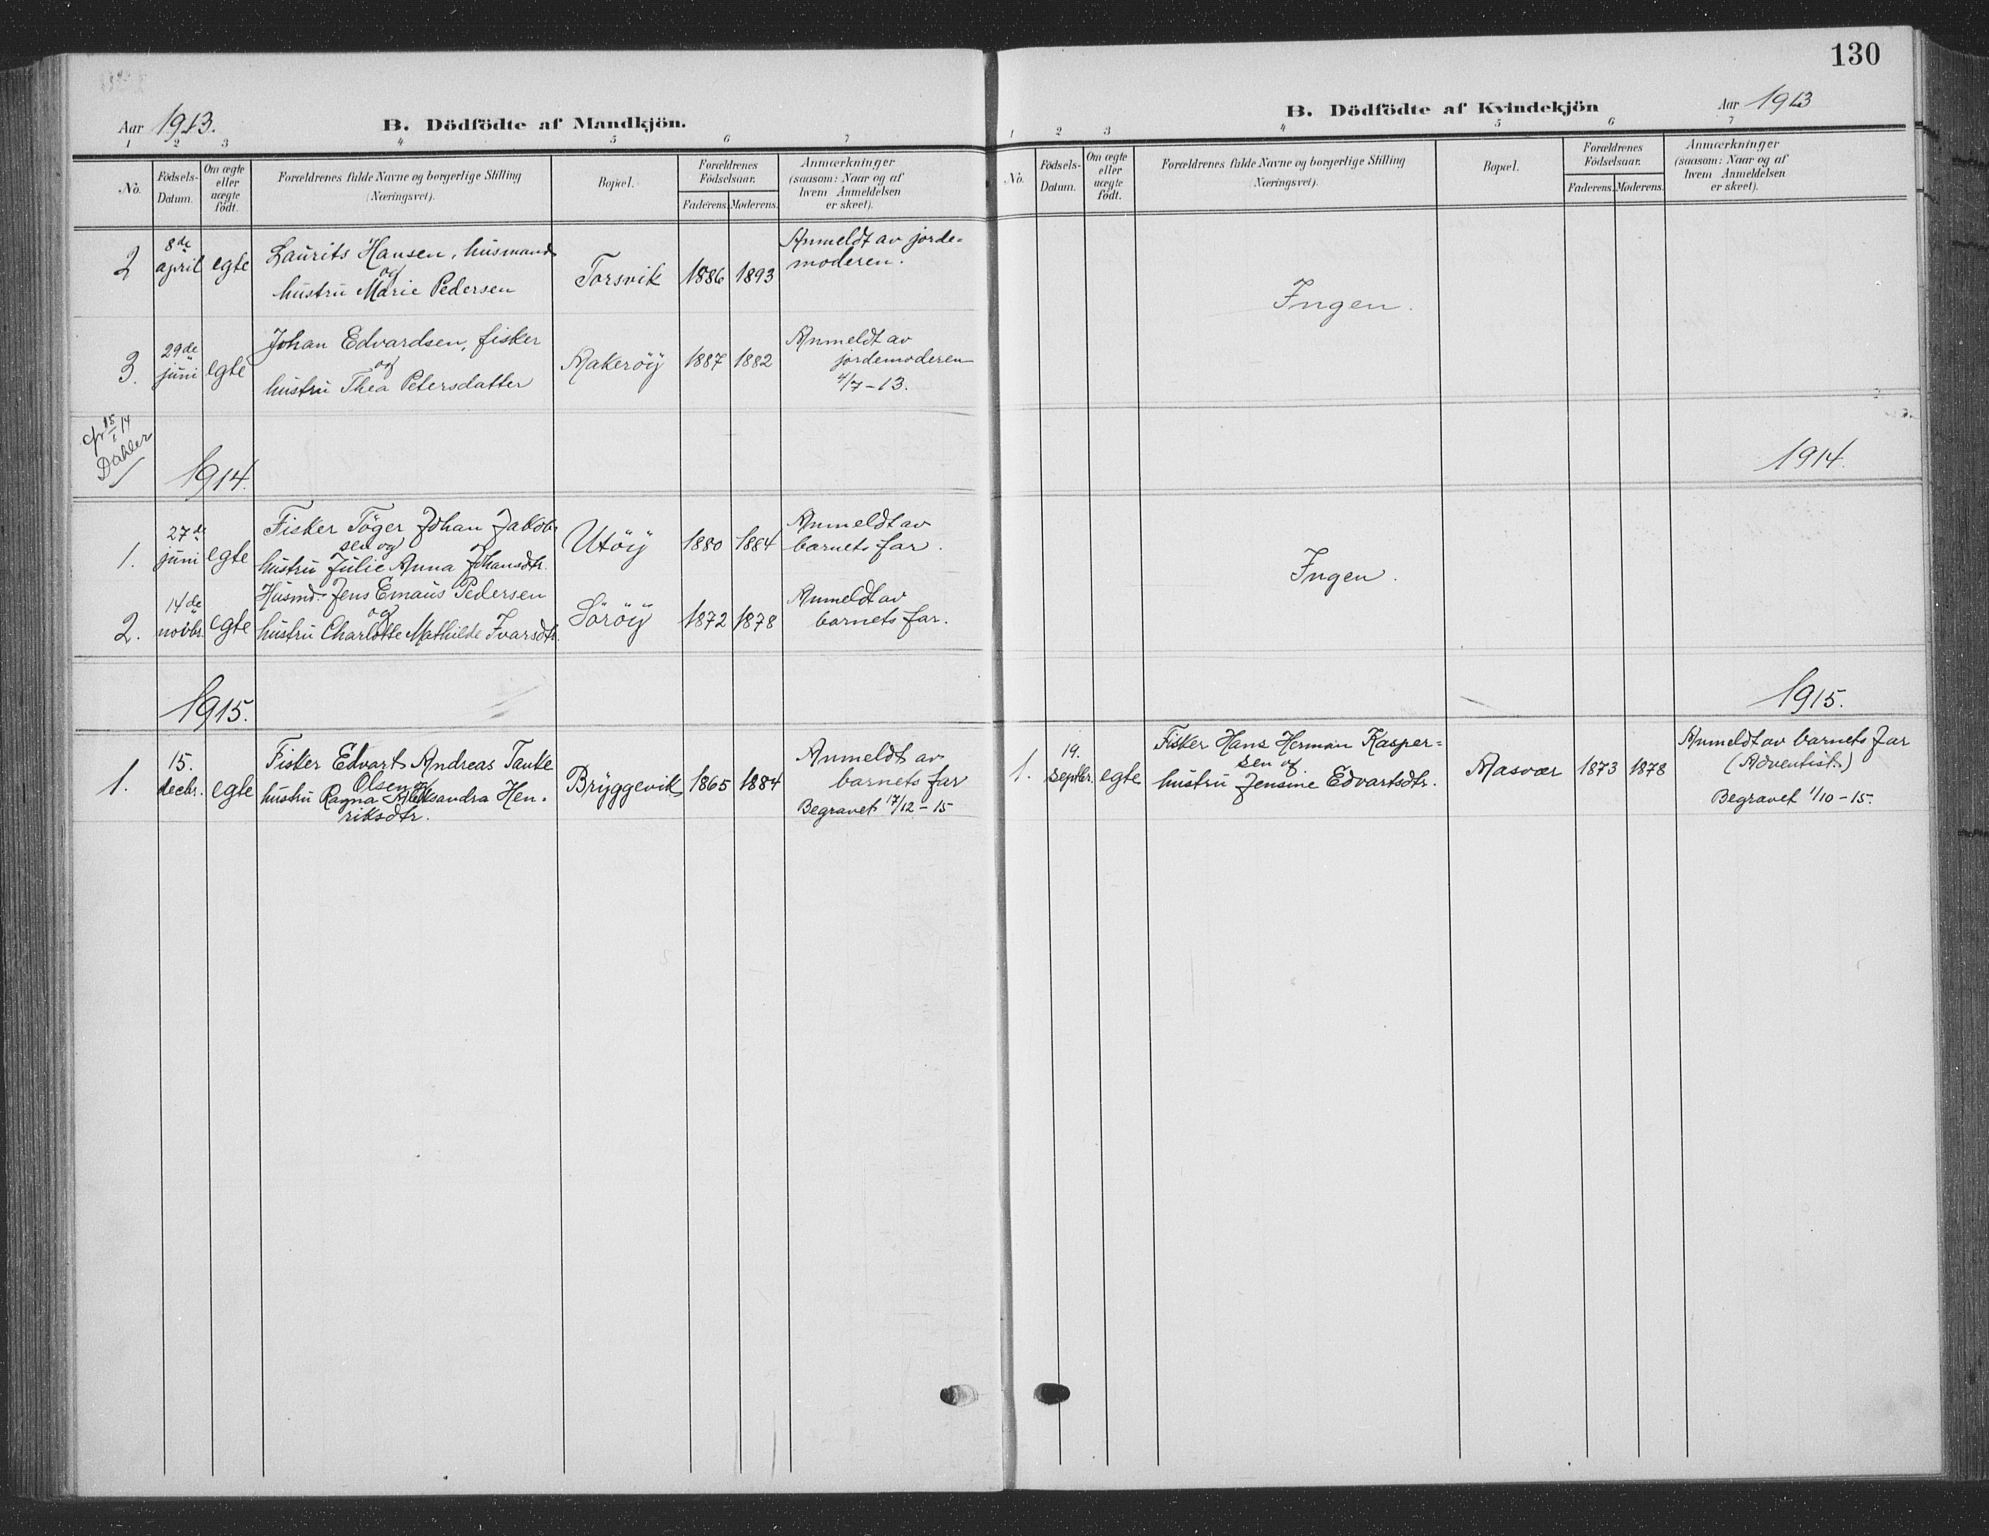 130
Aar 1913.
B. Dödfödte af Mandkjön.
1 2 3 4 5 6 7
No.
Födsels-
Datum.
Om ægte
eller
uægte
födt.
Forældrenes fulde Navne og borgerlige Stilling
(Næringsvei).
Bopæl.
Forældrenes
Födselsaar.
Faderens. Moderens.
Anmærkninger
(saasom: Naar og af
hvem Anmeldelsen
er skeet).
2 8de april egte
Laurits Hansen, husmand
og
hustru Marie Pedersen
Torsvik 1886 1893
Anmeldt av jorde-
moderen.
3. 29de juni egte
Johan Edvardsen, fisker
og
hustru Thea Petersdatter
Rakeröy 1887 1882
Anmeldt av
jordemoderen
4/7-13.
cfr 15/1 14
Dahler
1914.
1. 27de juni egte
Fisker Töger Johan Jakob-
sen og
hustru Julie Anna Johansdtr.
Utöy 1880 1884
Anmeldt av
barnets far.
2. 14de novbr. egte
Husmd. Jens Emaus Pedersen
og
hustru Charlotte Mathilde Ivarsdtr.
Söröy 1872 1878
Anmeldt av
barnets far.
1915.
1. 15. decbr. egte
Fisker Edvart Andreas Tanke
Olsen og
hustru Ragna Aleksandra Hen-
riksdtr.
Bryggevik 1865 1884
Anmeldt av
barnets far
Begravet 17/12-15
B. Dödfödte af Kvindekjön
Aar 1913
1 2 3 4 5 6 7
No.
Födsels-
Datum.
Om ægte
eller
uægte
födt.
Forældrenes fulde Navne og borgerlige Stilling
(Næringsvei).
Bopæl.
Forældrenes
Födselsaar.
Faderens. Moderens.
Anmærkninger
(saasom: Naar og af
hvem Anmeldelsen
er skeet).
Ingen.
1914.
Ingen.
1915.
1. 19. septbr. egte
Fisker Hans Herman Kasper-
sen og
hustru Jensine Edvartsdtr.
Aasvær 1873 1878
Anmeldt av barnets far
(Adventist.)
Begravet 1/10-15.